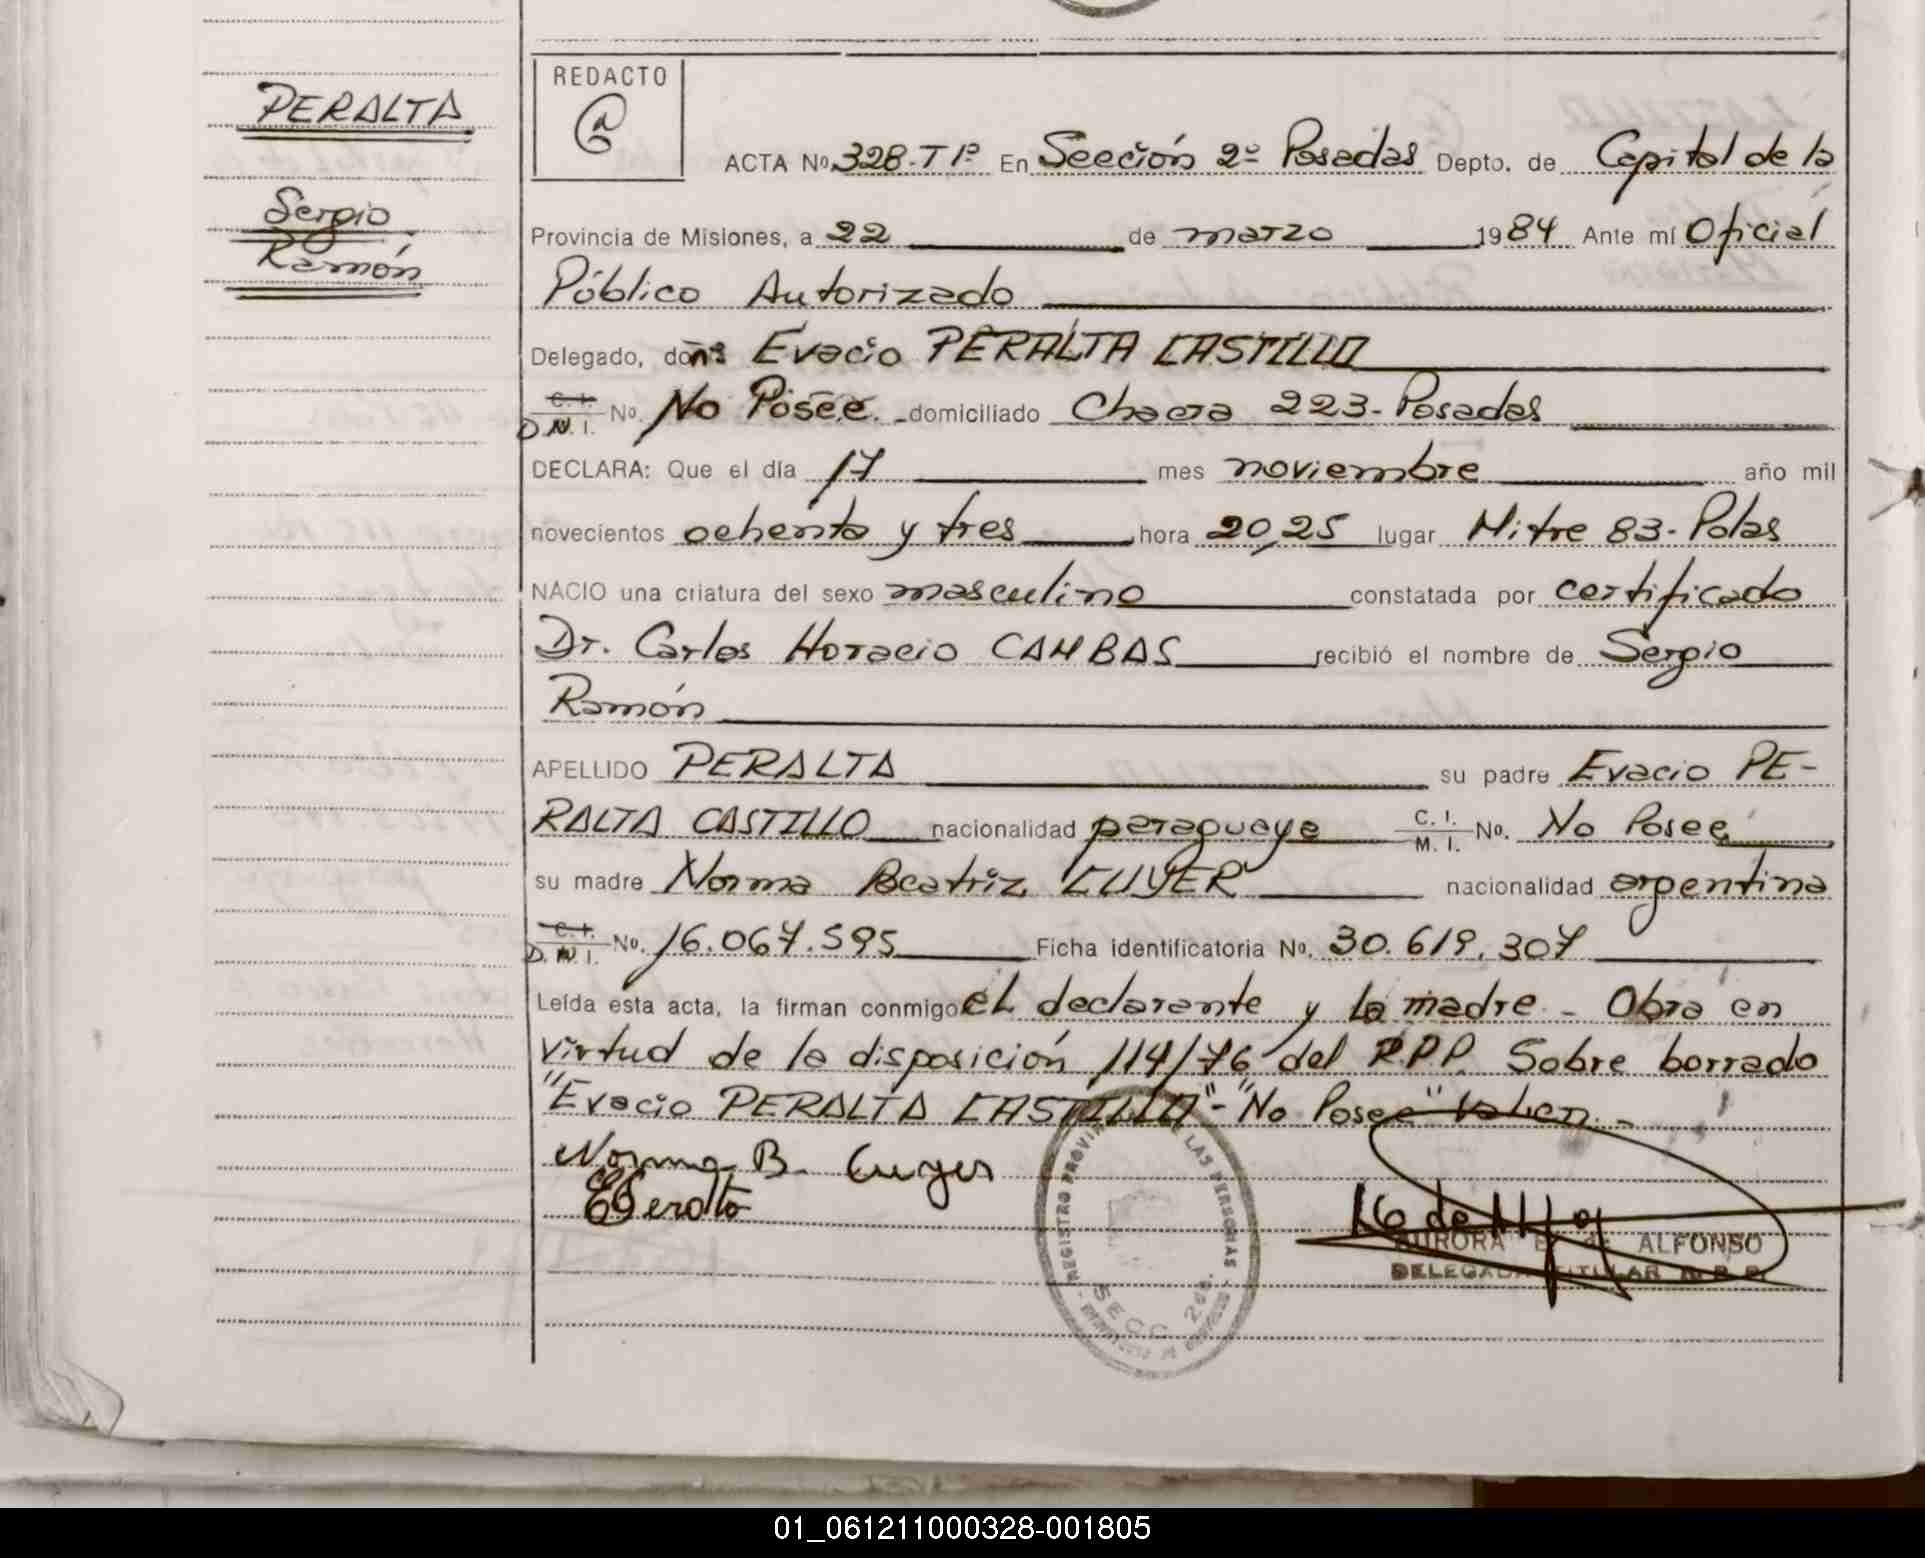 PERALTA
Sergio
Ramón
REDACTO
ACTA No. 328-Tº1º En Sección 2º Posadas Depto. de Capital de la
Provincia de Misiones, a 22 de marzo 1984 Ante mí Oficial
Público Autorizado
Delegado, don Evacio PERALTA CASTILLO
C. I. D.N.I. No. No Posee. domiciliado Chacra 223- Posadas
DECLARA: Que el día 17 mes noviembre año mil
novecientos ochenta y tres hora 20,25 lugar Mitre 83- Pdas
NACIO una criatura del sexo masculino constatada por certificado
Dr. Carlos Horacio CAMBAS recibió el nombre de Sergio
Ramón
APELLIDO PERALTA su padre Evacio PE-
RALTA CASTILLO nacionalidad paraguaya C. I. M. I. No. No Posee
su madre Norma Beatriz CUYER nacionalidad argentina
C. I. D.N.I. No. 16.067.595 Ficha identificatoria No. 30.619.307
Leída esta acta, la firman conmigo el declarante y la madre - Obra en
virtud de la disposición 114/76 del R.P.P. Sobre borrado
"Evacio PERALTA CASTILLO"-"No Posee" Valen.-
Norma B. Cuyer
EPeralta
REGISTRO PROVINCIAL DE LAS PERSONAS
SECC. 2da.
AURORA ALFONSO
DELEGADA TITULAR R. P. P.
01_061211000328-001805